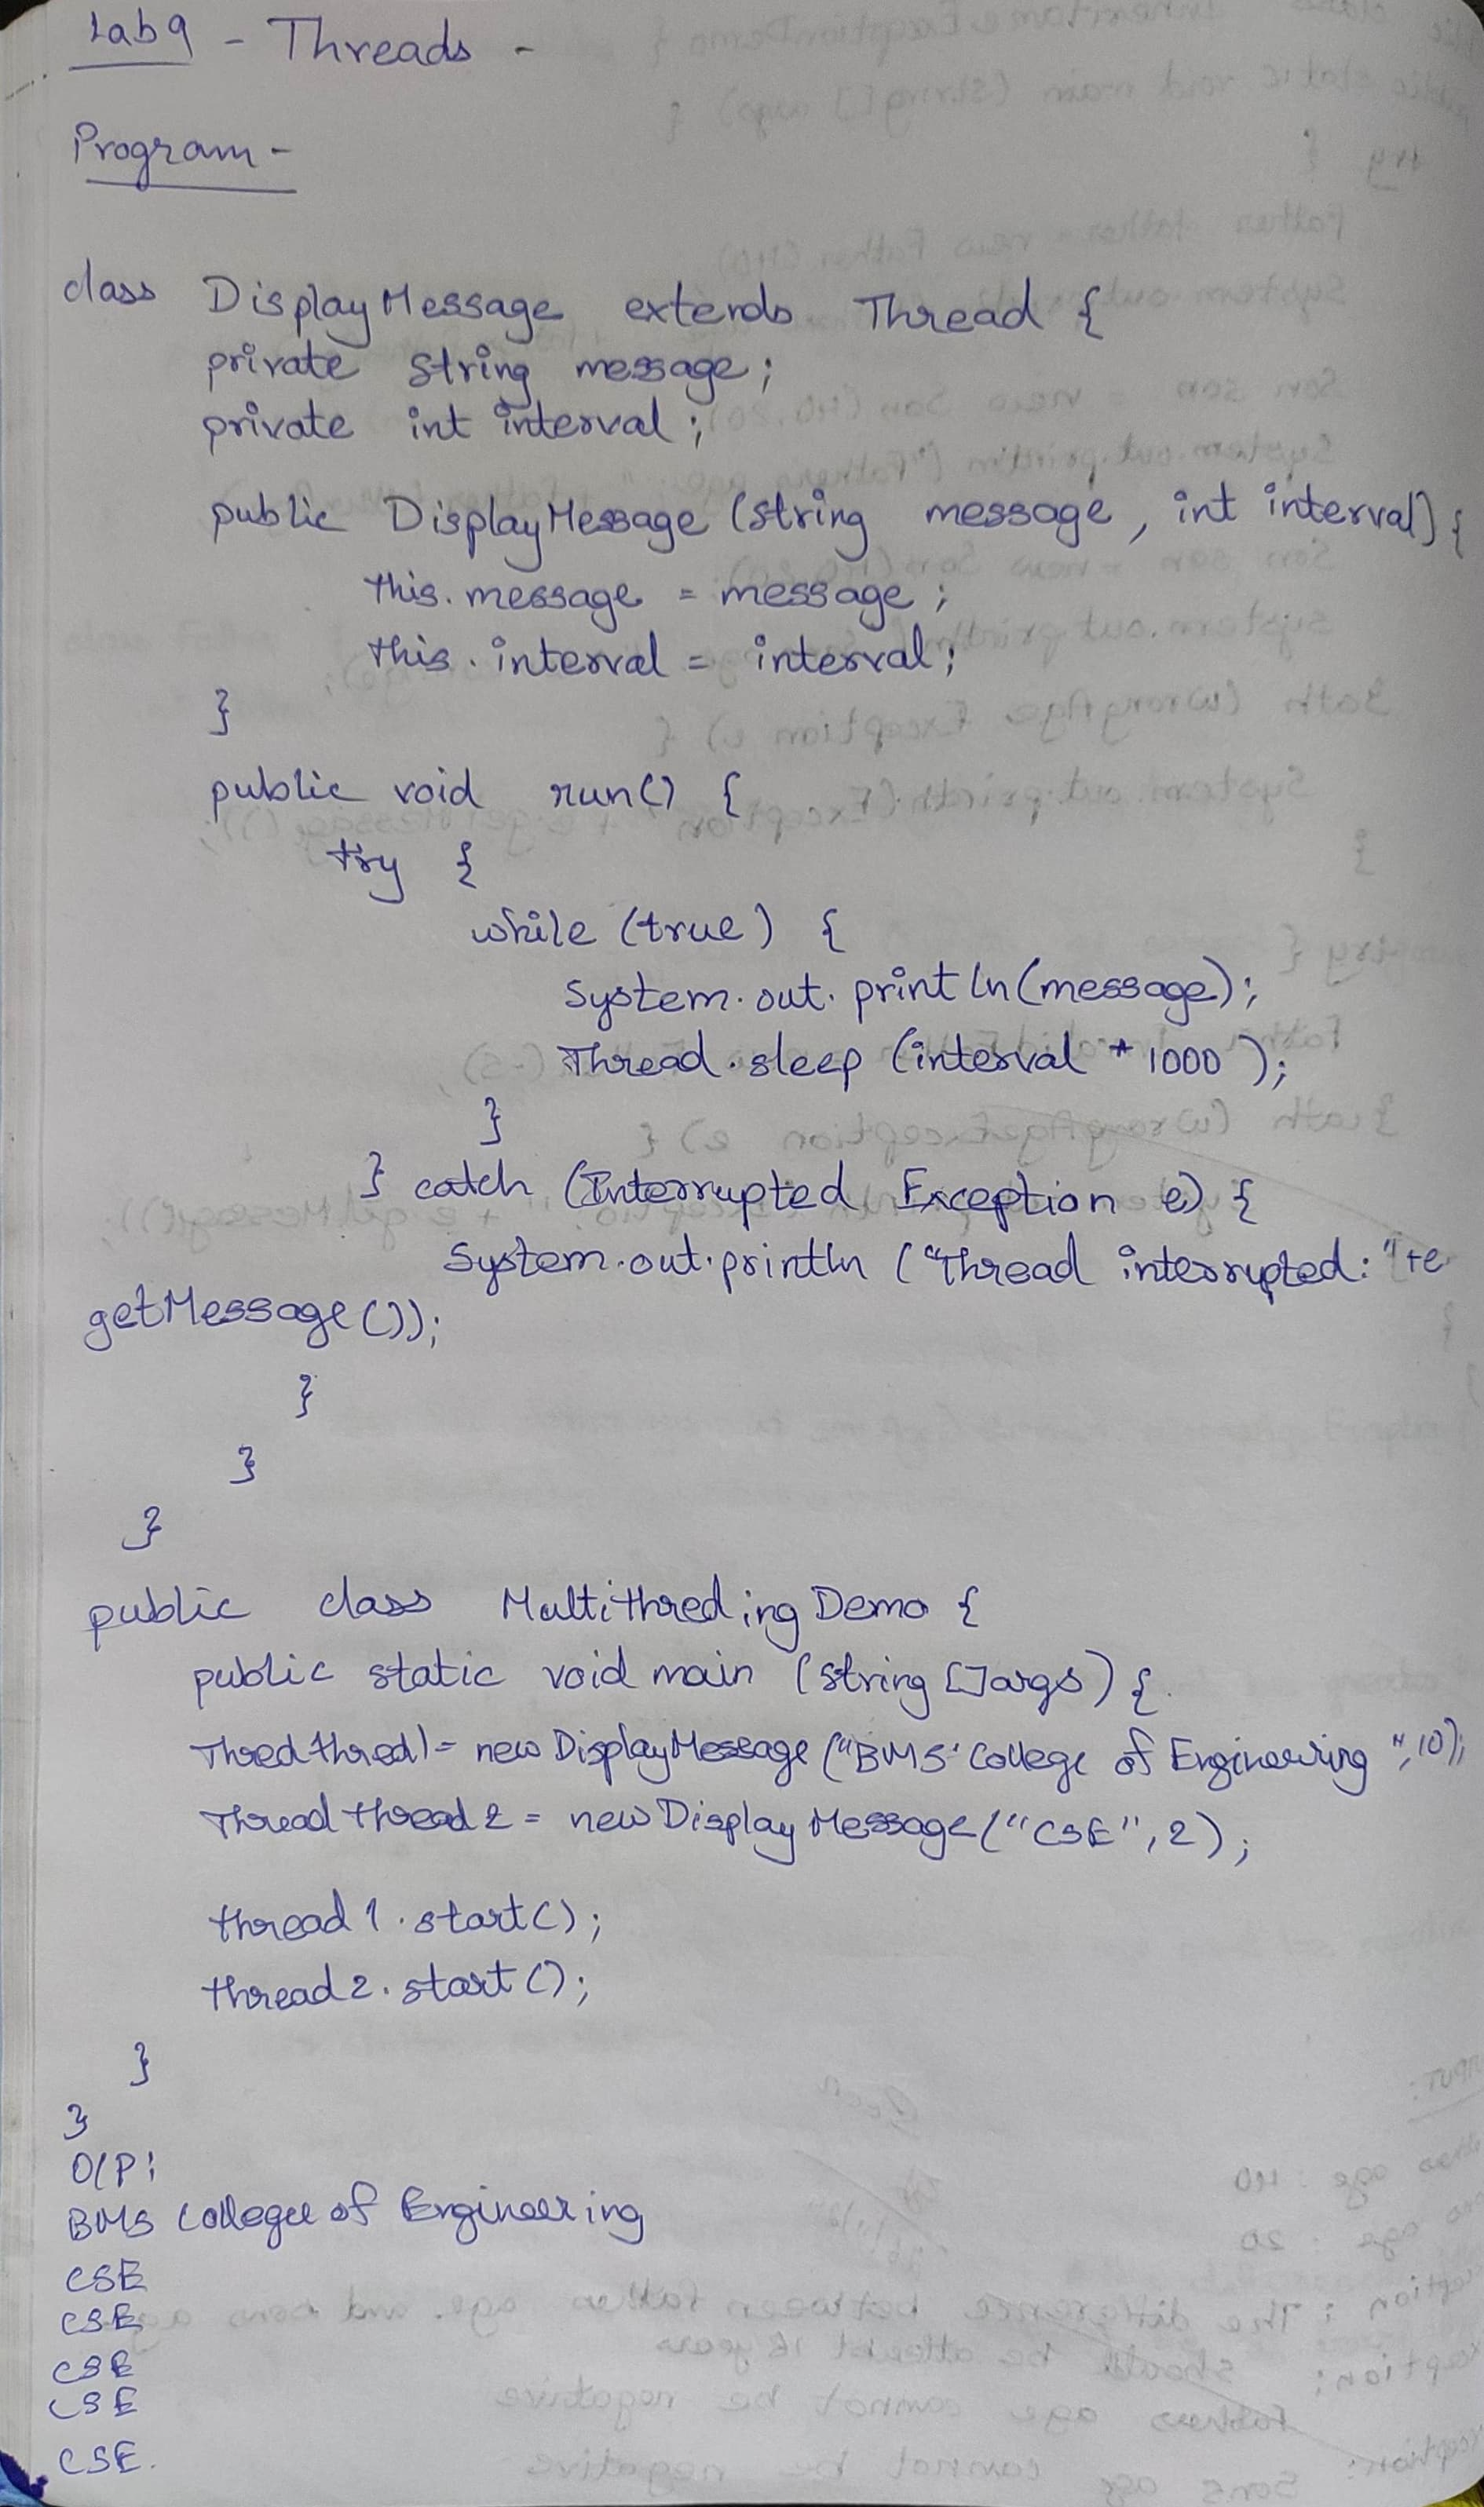 Lab 9 - Threads -
Program -
class DisplayMessage extends Thread {
private string message;
private int interval;
public DisplayMessage (string message, int interval) {
this.message = message;
this.interval = interval;
}
public void run() {
try {
while (true) {
System.out.println(message);
Thread.sleep (interval * 1000);
}
} catch (Interrupted Exception e) {
System.out.println ("Thread interrupted:"+e
getMessage());
}
}
}
public class Multithreding Demo {
public static void main (string []args) {
Thred thred1 = new DisplayMessage ("BMS College of Engineering", 10);
Thread thread2 = new DisplayMessage ("CSE", 2);
thread1.start();
thread2.start();
}
}
O/P:
BMS Collegee of Engineering
CSE
CSE
CSE
CSE
CSE.